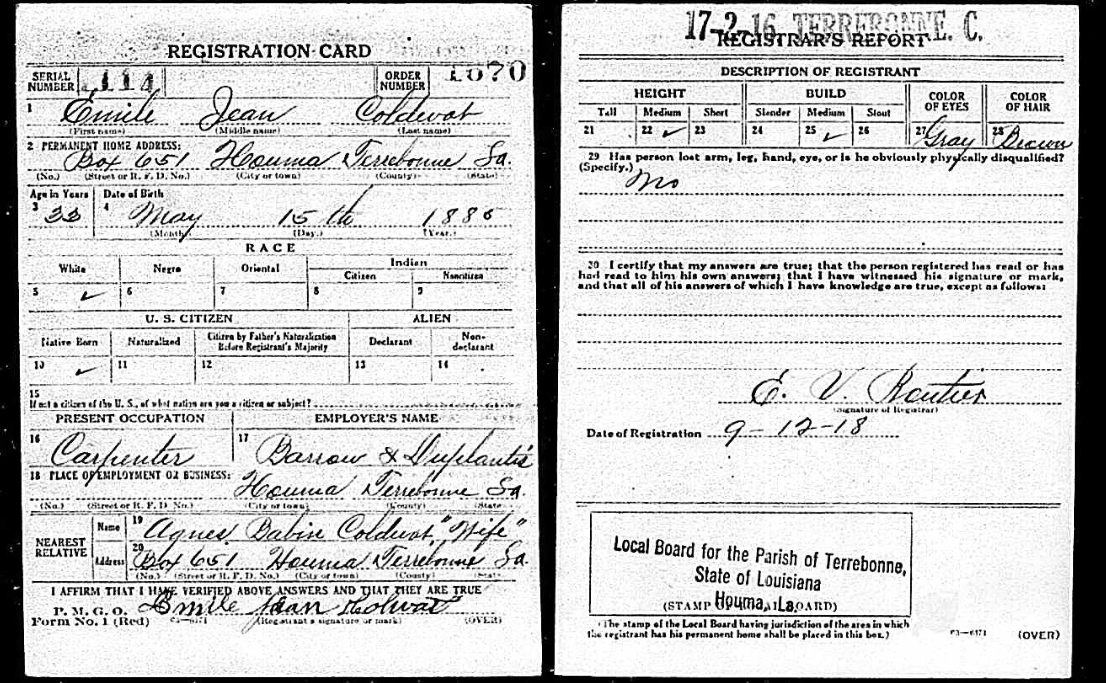 REGISTRATION CARD
SERIAL NUMBER 114 ORDER NUMBER 1870
1 Emile Jean Coldwat
(First name) (Middle name) (Last name)
2 PERMANENT HOME ADDRESS:
Box 651 Houma Terrebonne La.
(No.) (Street or R. F. D. No.) (City or town) (County) (State)
Age in Years Date of Birth
3 33 4 May 15 th 1885
(Month.) (Day.) (Year.)
RACE
White Negro Oriental Indian
Citizen Noncitizen
5 ✓ 6 7 8 9
U. S. CITIZEN ALIEN
Native Born Naturalized Citizen by Father's Naturalization Before Registrant's Majority Declarant Non-declarant
10 ✓ 11 12 13 14
15
If not a citizen of the U. S., of what nation are you a citizen or subject?
PRESENT OCCUPATION EMPLOYER'S NAME
16 Carpenter 17 Barrow & Duplantis
18 PLACE OF EMPLOYMENT OR BUSINESS:
Houma Terrebonne La.
(No.) (Street or R. F. D. No.) (City or town) (County) (State)
NEAREST RELATIVE Name 19 Agnes Babin Coldwat, "Wife"
Address 20 Box 651 Houma Terrebonne La.
(No.) (Street or R. F. D. No.) (City or town) (County) (State)
I AFFIRM THAT I HAVE VERIFIED ABOVE ANSWERS AND THAT THEY ARE TRUE
P. M. G. O.
Form No. 1 (Red) Emile Jean
03—6171 (Registrant's signature or mark) (OVER)
17-2-16 TERREBONNE. C.
REGISTRAR'S REPORT
DESCRIPTION OF REGISTRANT
HEIGHT BUILD COLOR OF EYES COLOR OF HAIR
Tall Medium Short Slender Medium Stout
21 22 ✓ 23 24 25 ✓ 26 27 Gray 28 Brown
29 Has person lost arm, leg, hand, eye, or is he obviously physically disqualified?
(Specify.) No
30 I certify that my answers are true; that the person registered has read or has
had read to him his own answers; that I have witnessed his signature or mark,
and that all of his answers of which I have knowledge are true, except as follows:
E. V.
(Signature of Registrar)
Date of Registration 9-12-18
Local Board for the Parish of Terrebonne,
State of Louisiana
Houma, La.
(STAMP OF LOCAL BOARD)
(The stamp of the Local Board having jurisdiction of the area in which
the registrant has his permanent home shall be placed in this box.)
03—6171 (OVER)